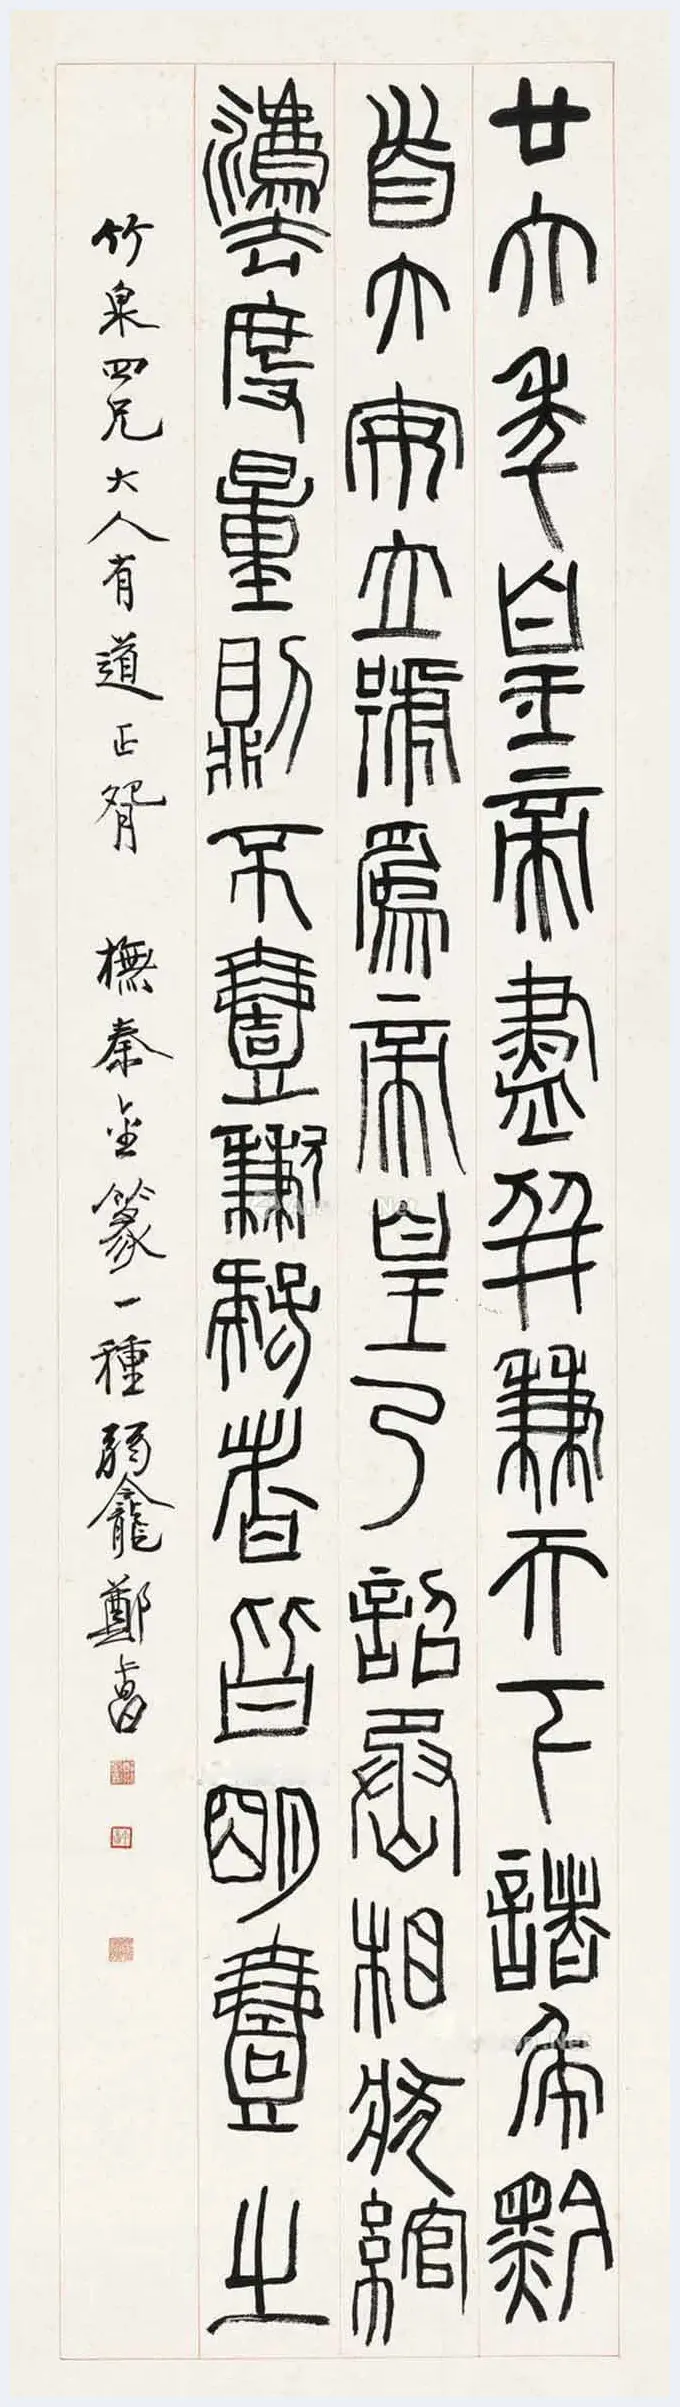 廿六年皇帝盡并兼天下諸矦黔
首大安立號爲皇帝乃詔丞相狀綰
灋度量則不壹歉疑者皆明壹之
竹泉四兄大人有道正腕 橅秦金篆一種弱龕鄭𠧧